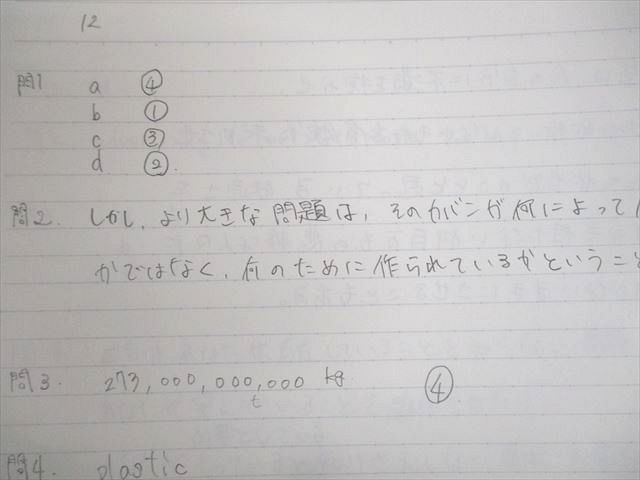 12
問1 a ④
b ①
c ③
d ②.
問2. しかし、より大きな問題は、そのカバンが何によって
かではなく、何のために作られているかということ
問3. 273,000,000,000 kg ④
t
問4. plastic